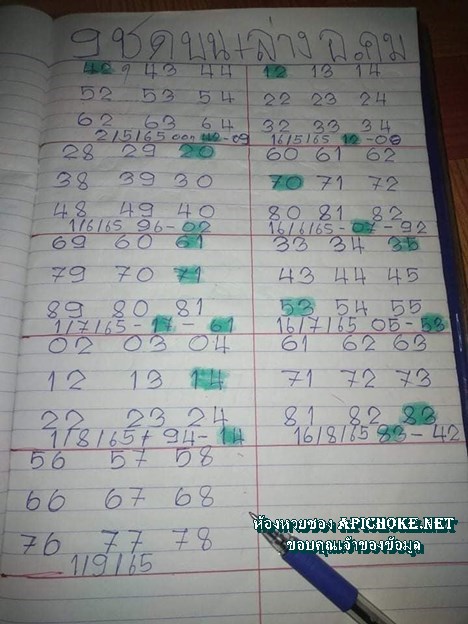 9 ชุด บน+ล่าง อ.ดม
42 9 43 44
52 53 54
62 63 64
2/5/65 ออก 42-09
12 13 14
22 23 24
32 33 34
16/5/65 12-06
28 29 20
38 39 30
48 49 40
1/6/65 96-02
60 61 62
70 71 72
80 81 82
16/6/65-07-92
69 60 61
79 70 71
89 80 81
1/7/65-17-61
33 34 35
43 44 45
53 54 55
16/7/65 05-53
02 03 04
12 13 14
22 23 24
1/8/65+ 94-14
61 62 63
71 72 73
81 82 83
16/8/65 83-42
56 57 58
66 67 68
76 77 78
1/9/65
ห้องหวยซอง APICHOKE.NET
ขอบคุณเจ้าของข้อมูล